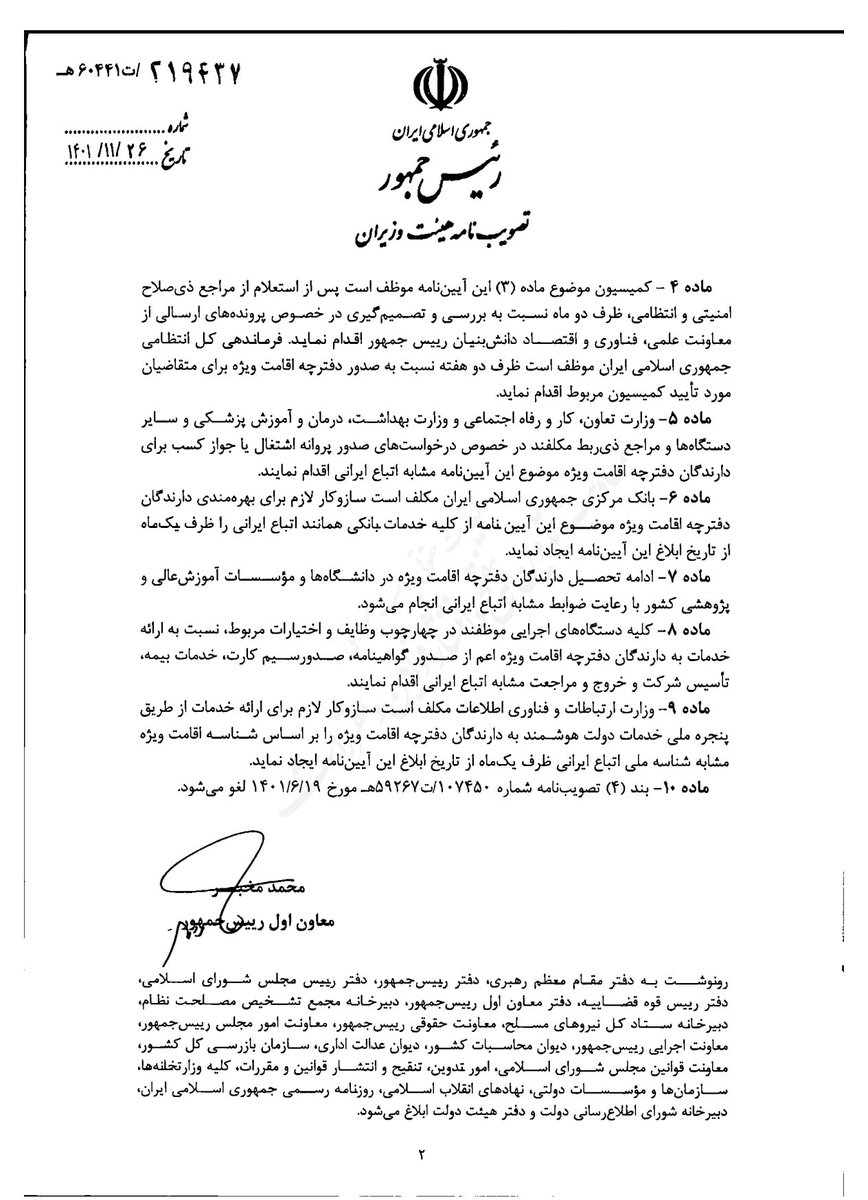 ۲۱۹۴۳۷/ت۶۰۴۴۱هـ
شماره
تاریخ ۱۴۰۱/۱۱/۲۶
جمهوری اسلامی ایران
رئیس جمهور
تصویب نامه هیئت وزیران
ماده ۴ – کمیسیون موضوع ماده (۳) این آیین‌نامه موظف است پس از استعلام از مراجع ذی‌صلاح
امنیتی و انتظامی، ظرف دو ماه نسبت به بررسی و تصمیم‌گیری در خصوص پرونده‌های ارسالی از
معاونت علمی، فناوری و اقتصاد دانش‌بنیان رییس جمهور اقدام نماید. فرماندهی کل انتظامی
جمهوری اسلامی ایران موظف است ظرف دو هفته نسبت به صدور دفترچه اقامت ویژه برای متقاضیان
مورد تأیید کمیسیون مربوط اقدام نماید.
ماده ۵– وزارت تعاون، کار و رفاه اجتماعی و وزارت بهداشت، درمان و آموزش پزشکی و سایر
دستگاه‌ها و مراجع ذی‌ربط مکلفند در خصوص درخواست‌های صدور پروانه اشتغال یا جواز کسب برای
دارندگان دفترچه اقامت ویژه موضوع این آیین‌نامه مشابه اتباع ایرانی اقدام نمایند.
ماده ۶– بانک مرکزی جمهوری اسلامی ایران مکلف است سازوکار لازم برای بهره‌مندی دارندگان
دفترچه اقامت ویژه موضوع این آیین‌نامه از کلیه خدمات بانکی همانند اتباع ایرانی را ظرف یک‌ماه
از تاریخ ابلاغ این آیین‌نامه ایجاد نماید.
ماده ۷– ادامه تحصیل دارندگان دفترچه اقامت ویژه در دانشگاه‌ها و مؤسسات آموزش‌عالی و
پژوهشی کشور با رعایت ضوابط مشابه اتباع ایرانی انجام می‌شود.
ماده ۸– کلیه دستگاه‌های اجرایی موظفند در چهارچوب وظایف و اختیارات مربوط، نسبت به ارائه
خدمات به دارندگان دفترچه اقامت ویژه اعم از صدور گواهینامه، صدورسیم کارت، خدمات بیمه،
تأسیس شرکت و خروج و مراجعت مشابه اتباع ایرانی اقدام نمایند.
ماده ۹– وزارت ارتباطات و فناوری اطلاعات مکلف است سازوکار لازم برای ارائه خدمات از طریق
پنجره ملی خدمات دولت هوشمند به دارندگان دفترچه اقامت ویژه را بر اساس شناسه اقامت ویژه
مشابه شناسه ملی اتباع ایرانی ظرف یک‌ماه از تاریخ ابلاغ این آیین‌نامه ایجاد نماید.
ماده ۱۰– بند (۴) تصویب‌نامه شماره ۱۰۷۴۵۰/ت۵۹۲۶۷هـ مورخ ۱۴۰۱/۶/۱۹ لغو می‌شود.
محمد مخبر
معاون اول رییس‌جمهور
رونوشت به دفتر مقام معظم رهبری، دفتر رییس‌جمهور، دفتر رییس مجلس شورای اسلامی،
دفتر رییس قوه قضاییه، دفتر معاون اول رییس‌جمهور، دبیرخانه مجمع تشخیص مصلحت نظام،
دبیرخانه ستاد کل نیروهای مسلح، معاونت حقوقی رییس‌جمهور، معاونت امور مجلس رییس‌جمهور،
معاونت اجرایی رییس‌جمهور، دیوان محاسبات کشور، دیوان عدالت اداری، سازمان بازرسی کل کشور،
معاونت قوانین مجلس شورای اسلامی، امور تدوین، تنقیح و انتشار قوانین و مقررات، کلیه وزارتخانه‌ها،
سازمان‌ها و مؤسسات دولتی، نهادهای انقلاب اسلامی، روزنامه رسمی جمهوری اسلامی ایران،
دبیرخانه شورای اطلاع‌رسانی دولت و دفتر هیئت دولت ابلاغ می‌شود.
۲